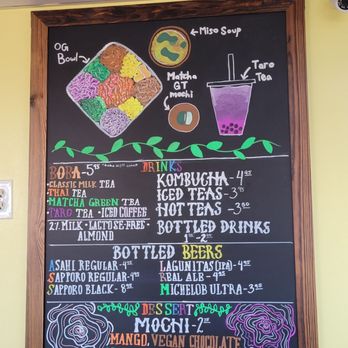 OG
Bowl
Miso Soup
Matcha
GT
mochi
Taro
Tea
BOBA-5
CLASSIC MILK TEA
THAI TEA
MATCHA GREEN TEA
TARO TEA • ICED COFFEE
2% MILK • LACTOSE-FREE •
ALMOND
DRINKS
KOMBUCHA-4
ICED TEAS-3
HOT TEAS-3
BOTTLED DRINKS
BOTTLED BEERS
ASAHI REGULAR-4
SAPPORO REGULAR-4
SAPPORO BLACK-8
LAGUNITAS (IPA)-4
REAL ALE-4
MICHELOB ULTRA-3
DESSERT
MOCHI-2
MANGO, VEGAN CHOCOLATE